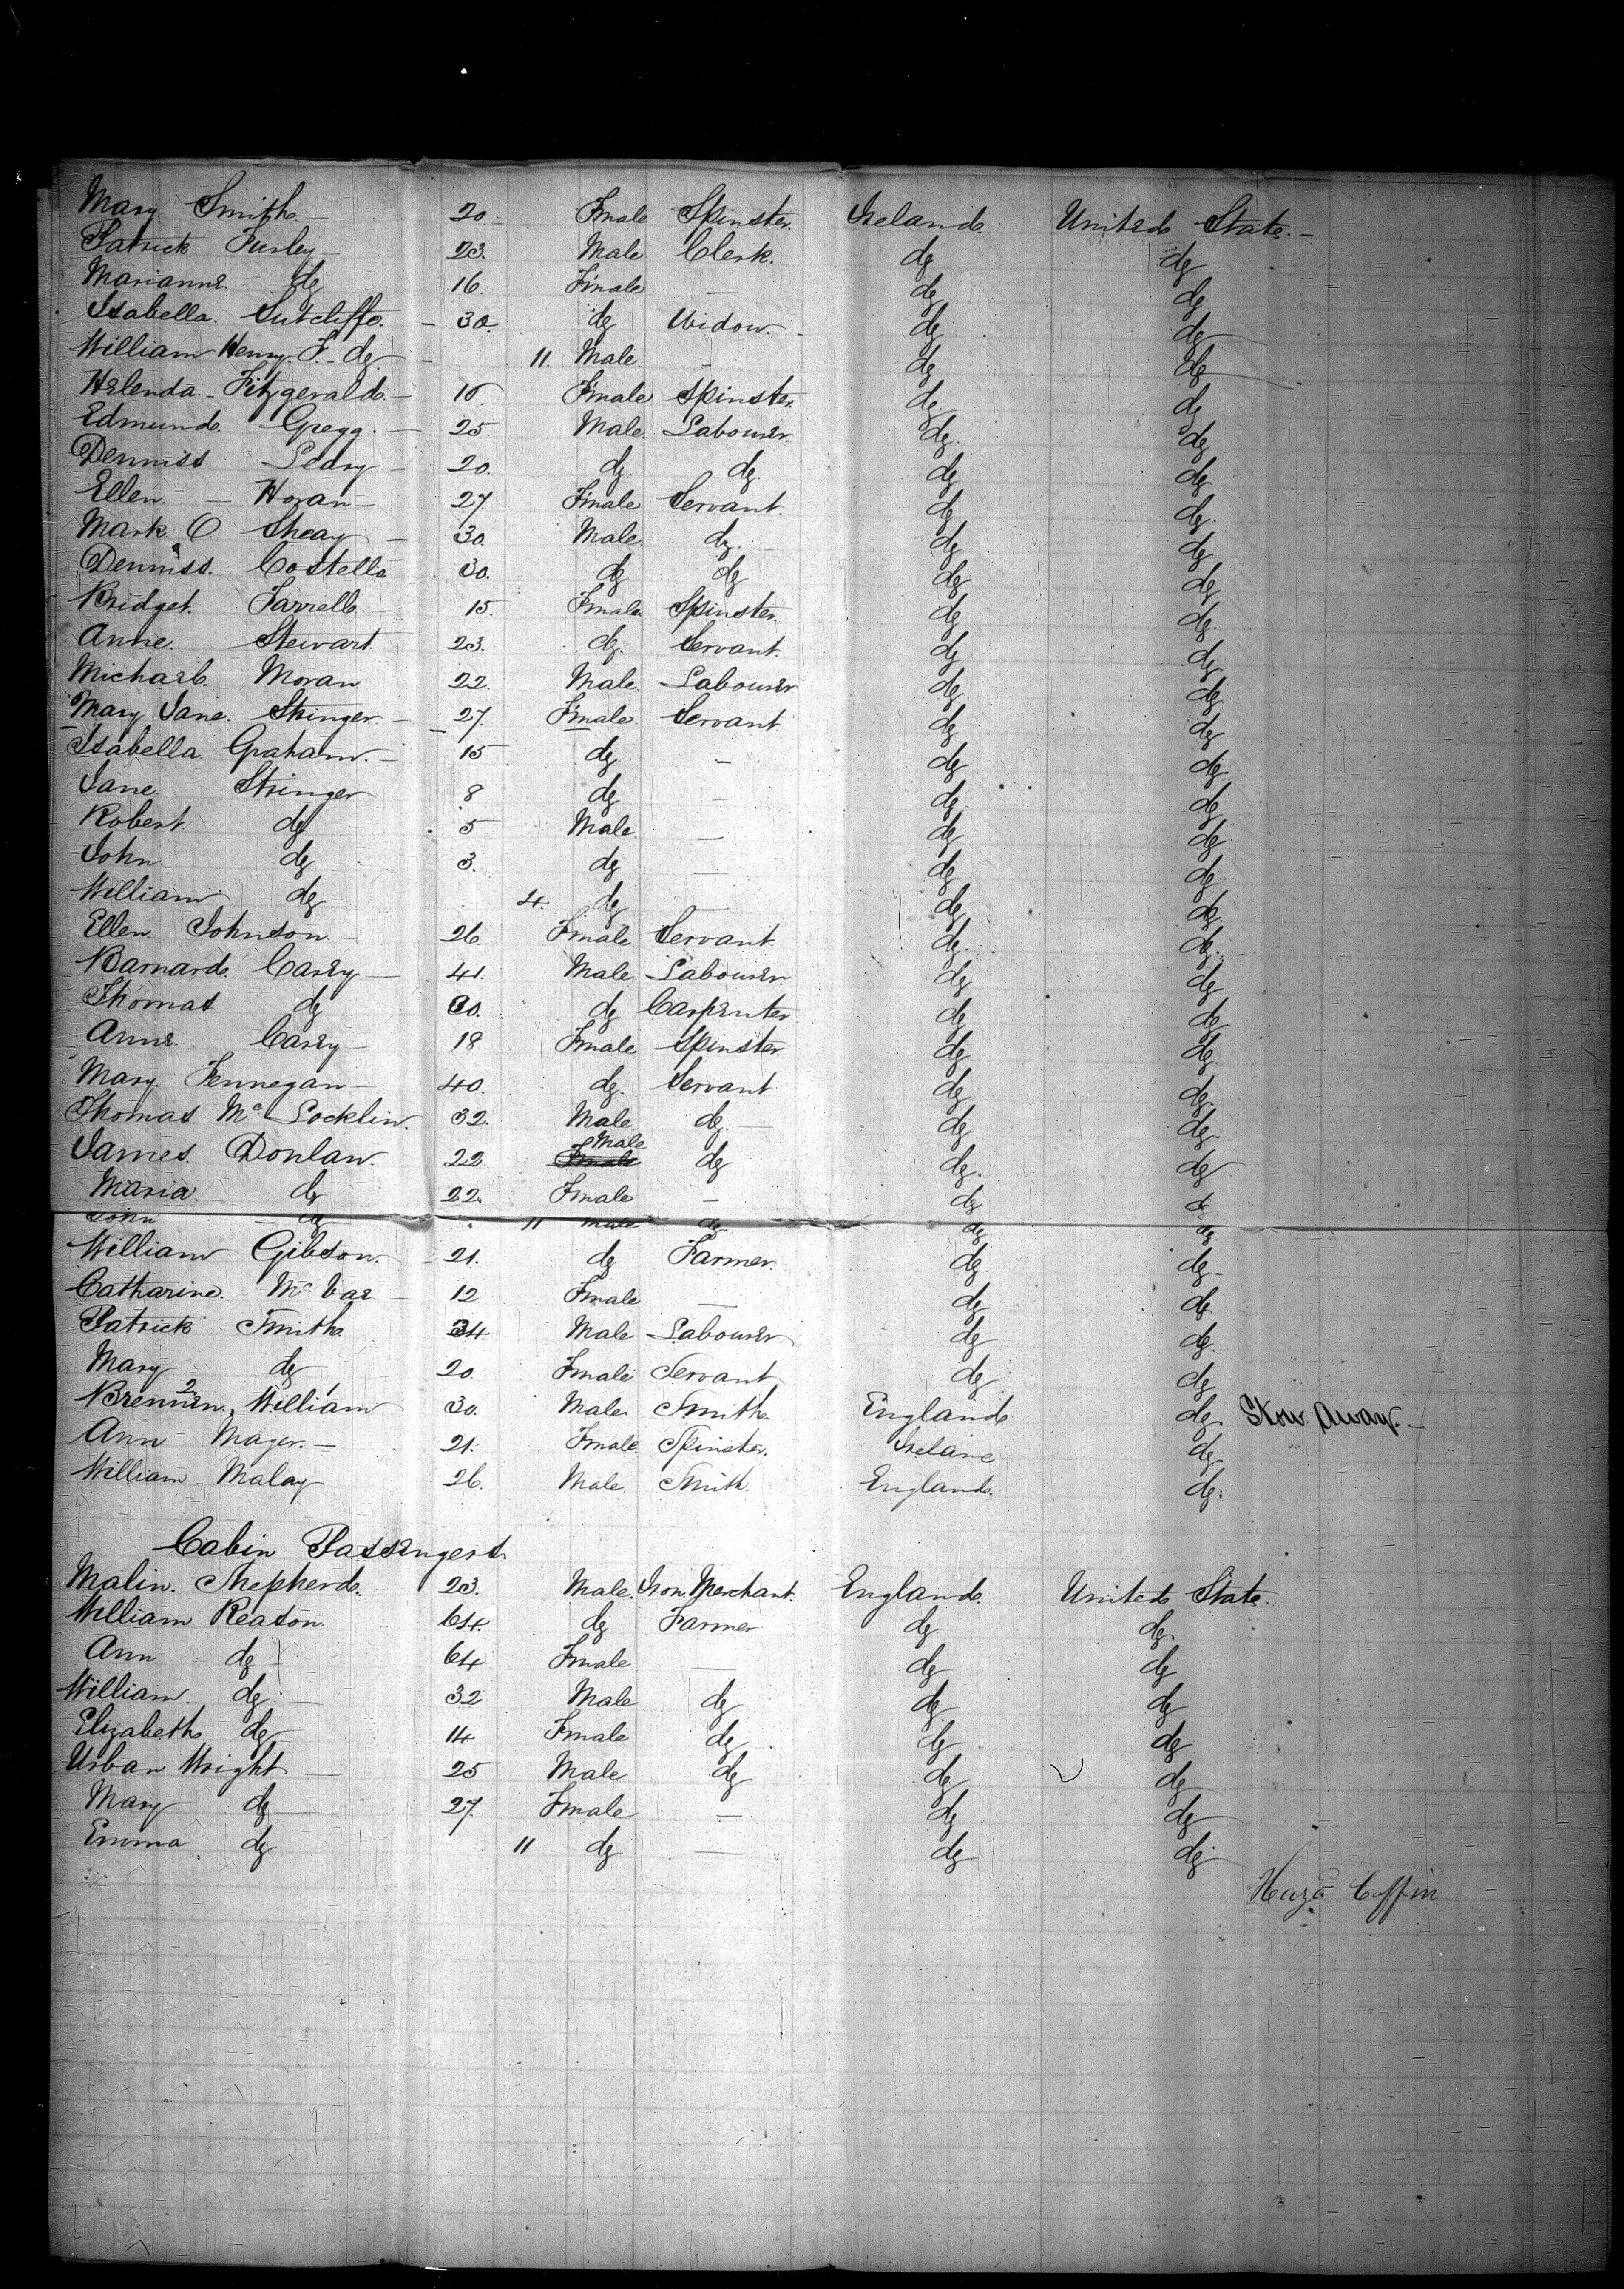 Mary Smith 20 Female Spinster Ireland United State
Patrick Furley 23 Male Clerk do do
Marianne do 16 Female — do do
Isabella Sutcliffe 30 do Widow do do
William Henry F. do 11 Male — do do
Helenda Fitzgerald Female Spinster do do
Edmund Gregg 25 Male Labourer do do
Denniss Leary 20 do do do do
Ellen Horan 27 Female Servant do do
Mark O Sheay 30 Male do do do
Denniss Costello 30 do do do do
Bridget Farrell 15 Female Spinster do do
Anne Stewart 23 do Servant do do
Michael Moran 22 Male Labourer do do
Mary Jane Stringer 27 Female Servant do do
Isabella Graham 15 do — do do
Jane Stringer 8 do — do do
Robert do 5 Male — do do
John do 3 do — do do
William do 4 do — do do
Ellen Johnson 26 Female Servant do do
Barnard Carey 41 Male Labourer do do
Thomas do 30 do Carpenter do do
Anne Carey 18 Female Spinster do do
Mary Fennegan 40 do Servant do do
Thomas Mc Locklin 32 Male do do do
James Donlan 22 Male do do do
Maria do 22 Female — do do
John do 11 Male do do do
William Gibson 21 do Farmer do do
Catharine 12 Female — do do
Patrick Smith 34 Male Labourer do do
Mary do 20 Female Servant do do
Brennen 2 William 1 30 Male Smith England do Stow Away
Ann Mager 21 Female Spinster Irelane do
William Malay 26 Male Smith England do
Cabin Passengers
Malin Shepherd 23 Male Iron Merchant England United State
William Reason 64 do Farmer do do
Ann do 64 Female — do do
William do 32 Male do do do
Elizabeth do 14 Female do do do
Urban Wright 25 Male do do do
Mary do 27 Female — do do
Emma do 11 do — do do
Coffin